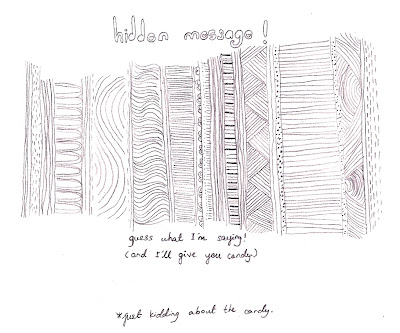 hidden message!
guess what I'm saying!
(and I'll give you candy)
*just kidding about the candy.